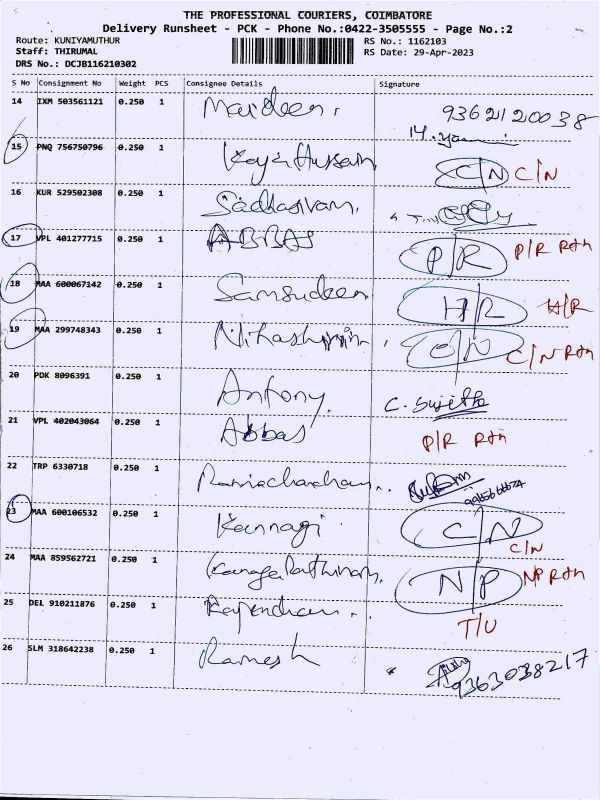 THE PROFESSIONAL COURIERS, COIMBATORE
Delivery Runsheet - PCK - Phone No.:0422-3505555 - Page No.:2
Route: KUNIYAMUTHUR RS No.: 1162103
Staff: THIRUMAL RS Date: 29-Apr-2023
DRS No.: DCJB116210302
S No Consignment No Weight PCS Consignee Details Signature
14 IXM 503561121 0.250 1 Maideen. 9362120038
15 PNQ 756750796 0.250 1 Kaja Hussain C/N C/N
16 KUR 529502308 0.250 1 Sadhasivam.
17 VPL 401277715 0.250 1 ABBAS P/R P/R Rtn
18 MAA 600067142 0.250 1 Samsudeen H/R H/R
19 MAA 299748343 0.250 1 C/N C/N Rtn
20 PDK 8096391 0.250 1 Antony. C. Sujetha
21 VPL 402043064 0.250 1 Abbas P/R Rtn
22 TRP 6330718 0.250 1 Ramachandran..
23 MAA 600106532 0.250 1 Kannagi C/N
C/N
24 MAA 859562721 0.250 1 KanagaRathinam. N/P NP Rtn
25 DEL 910211876 0.250 1 Rajendran.. T/U
26 SLM 318642238 0.250 1 Ramesh 9363038217